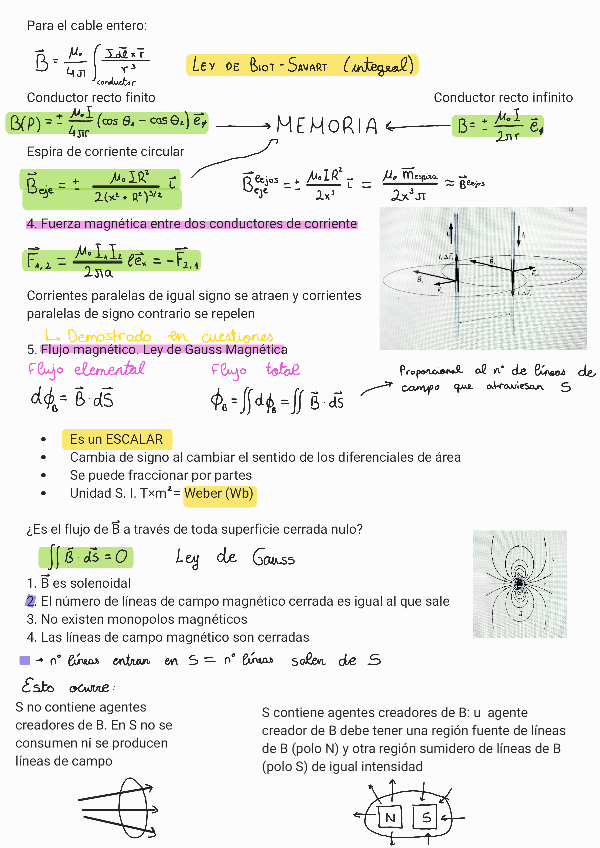 Para el cable entero:
B⃗ = μ₀/4π ∫conductor I dl⃗ × r⃗ / r³
LEY DE BIOT-SAVART (integral)
Conductor recto finito
Conductor recto infinito
B(P) = ± μ₀I/4πr (cos θ₁ - cos θ₂) e⃗φ
MEMORIA
B = ± μ₀I/2πr e⃗φ
Espira de corriente circular
B⃗eje = ± μ₀IR²/2(x²+R²)^3/2 i⃗
B⃗eje lejos = ± μ₀IR²/2x³ i⃗ = μ₀ m⃗espira/2x³π ≈ B⃗lejos
4. Fuerza magnética entre dos conductores de corriente
F⃗₁,₂ = μ₀I₁I₂/2πa l e⃗x = -F⃗₂,₁
Corrientes paralelas de igual signo se atraen y corrientes
paralelas de signo contrario se repelen
↳ Demostrado en cuestiones
5. Flujo magnético. Ley de Gauss Magnética
Flujo elemental
Flujo total
Proporcional al n° de líneas de
campo que atraviesan S
dϕB = B⃗ · dS⃗
ϕB = ∬dϕB = ∬ B⃗ · dS⃗
• Es un ESCALAR
• Cambia de signo al cambiar el sentido de los diferenciales de área
• Se puede fraccionar por partes
• Unidad S. I. T×m²= Weber (Wb)
¿Es el flujo de B⃗ a través de toda superficie cerrada nulo?
∬ B⃗ · dS⃗ = 0
Ley de Gauss
1. B⃗ es solenoidal
2. El número de líneas de campo magnético cerrada es igual al que sale
3. No existen monopolos magnéticos
4. Las líneas de campo magnético son cerradas
→ n° líneas entran en S = n° líneas salen de S
Esto ocurre:
S no contiene agentes
creadores de B. En S no se
consumen ni se producen
líneas de campo
S contiene agentes creadores de B: u agente
creador de B debe tener una región fuente de líneas
de B (polo N) y otra región sumidero de líneas de B
(polo S) de igual intensidad
N S